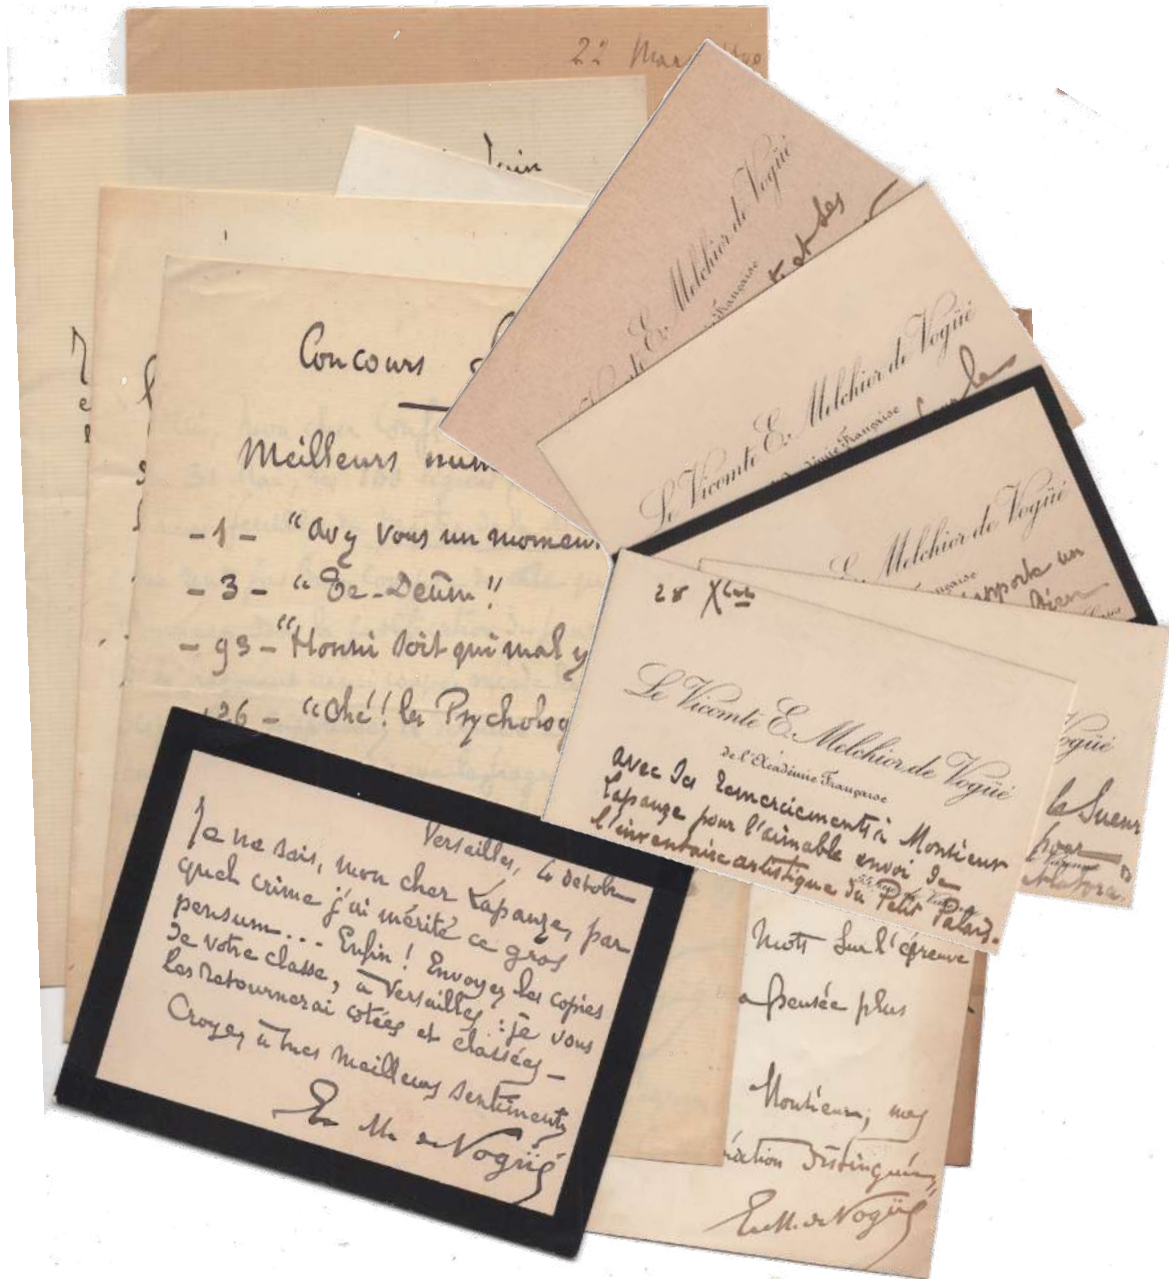 22 Mars
Juin
Concours
Meilleurs
- 1 - "Avez vous un moment
- 3 - "Te-Deum!"
- 93 - "Honni soit qui mal y
"Ohé!! les Psycholog
E. Melchior de Vogüé
Française
et ses
Le Vicomte E. Melchior de Vogüé
Académie Française
E. Melchior de Vogüé
rapporte un
28 Xbre
Le Vicomte E. Melchior de Vogüé
de l'Académie Française
avec ses remerciements à Monsieur
Lapauze pour l'aimable envoi de
l'inventaire artistique du Petit Palais.
Vogüé
la Sueur
pour
Versailles, 4 octobre
Je ne sais, mon cher Lapauze, par
quel crime j'ai mérité ce gros
pensum... Enfin! Envoyez les copies
de votre classe, à Versailles: je vous
les retournerai cotées et classées –
Croyez à mes meilleurs sentiments
E. M. de Vogüé
mots sur l'épreuve
a pensée plus
Monsieur, mes
distinguées
E. M. de Vogüé